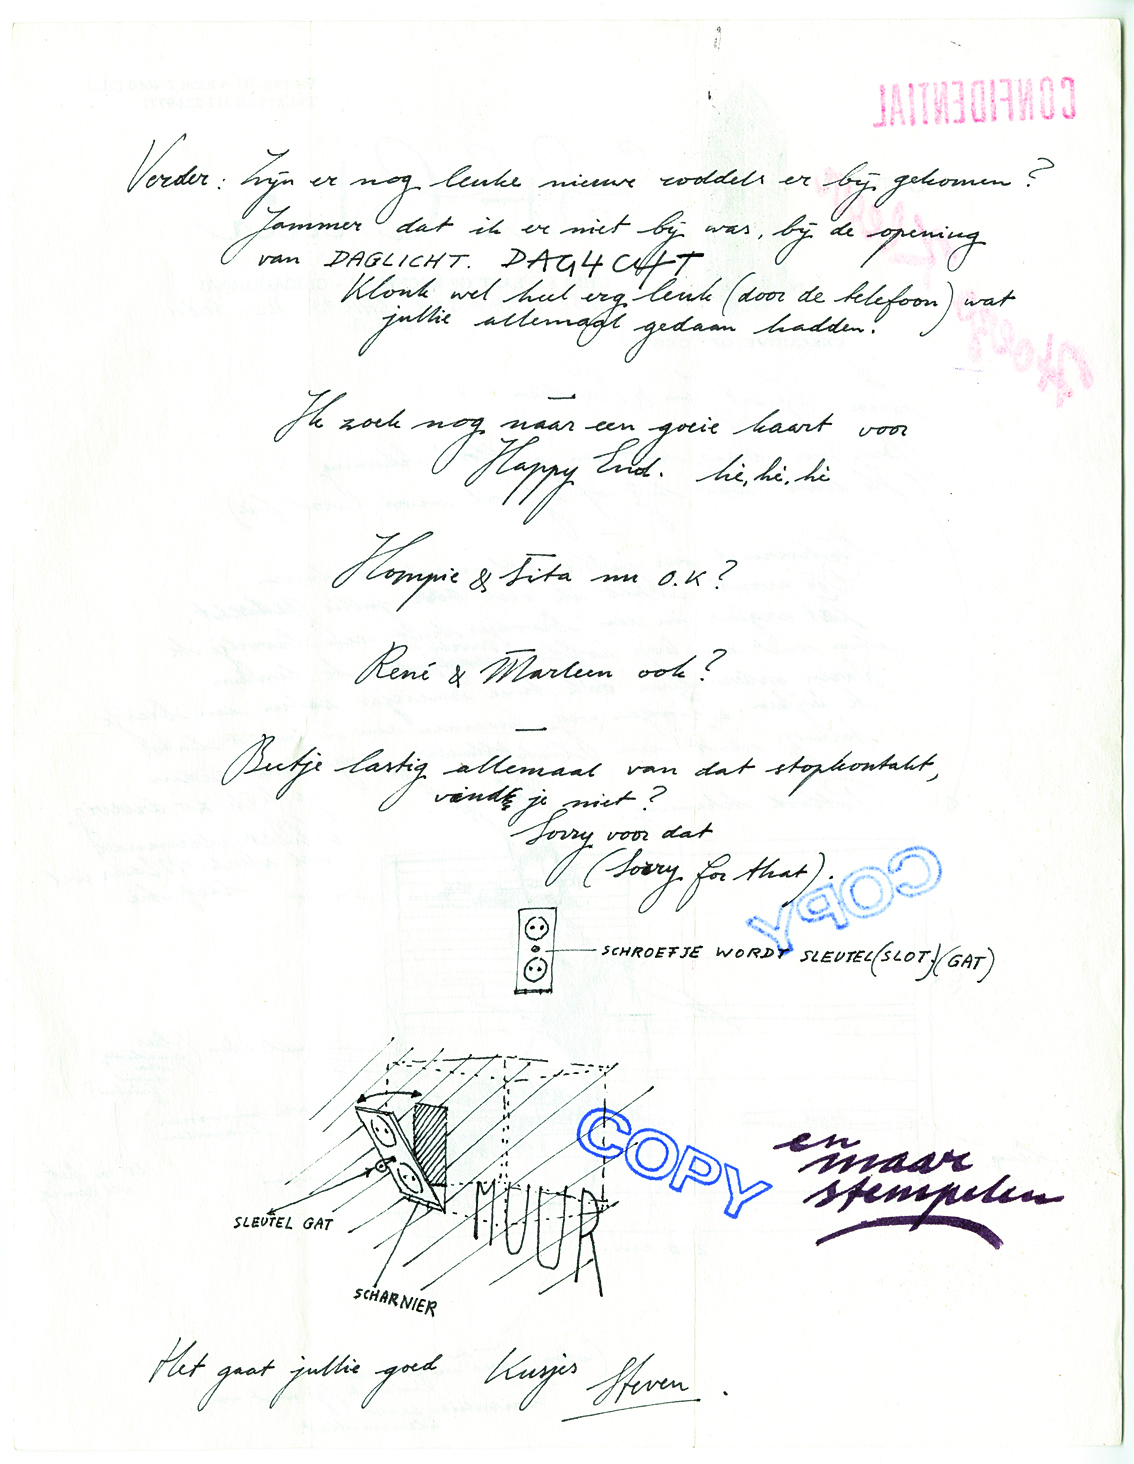 CONFIDENTIAL
Verder: Zijn er nog leuke nieuwe roddels er bij gekomen?
Jammer dat ik er niet bij was, bij de opening
van DAGLICHT. DAG4CHT
Klonk wel heel erg leuk (door de telefoon) wat
jullie allemaal gedaan hadden.
Ik zoek nog naar een goeie kaart voor
Happy End. hè, hè, hè
Hompie & Tita nu O.K?
René & Marleen ook?
Beetje lastig allemaal van dat stopkontakt,
vind je niet?
Sorry voor dat
(Sorry for that).
COPY
SCHROEFJE WORDT SLEUTEL(SLOT)(GAT)
COPY
en
maar
stempelen
MUUR
SLEUTEL GAT
SCHARNIER
Het gaat jullie goed Kusjes Steven.